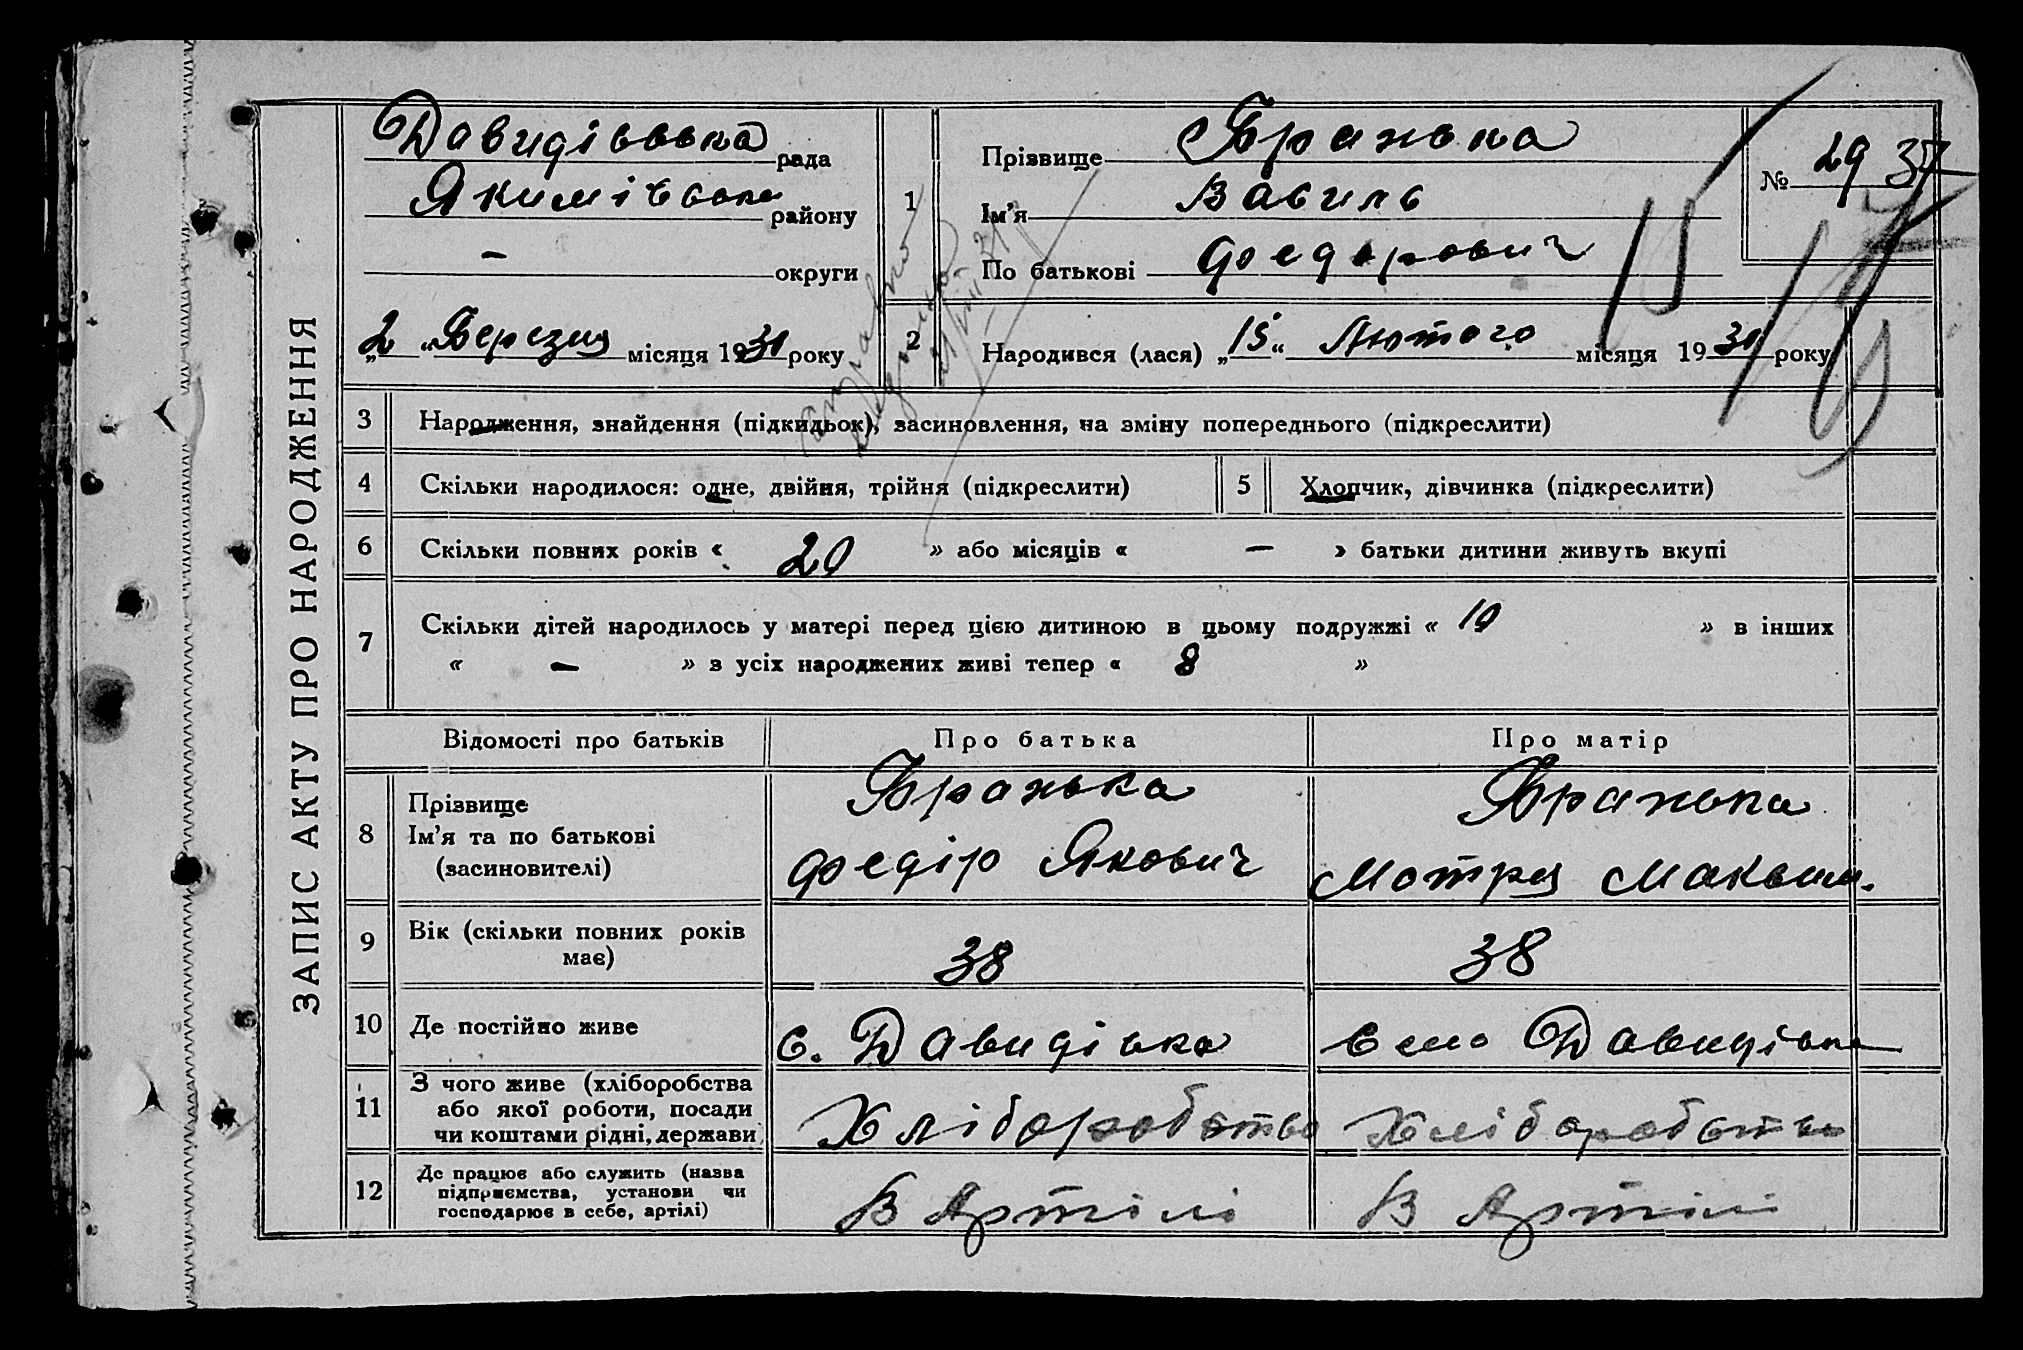 ЗАПИС АКТУ ПРО НАРОДЖЕННЯ
Давидівська рада
Якимівська району
— округи
„2“ Березня місяця 1931 року
1
Прізвище Бранька
Ім'я Василь
По батькові Федорович
№ 29 37
2
Народився (лася) „15“ Лютого місяця 1931 року
3 Народження, знайдення (підкидьок), засиновлення, на зміну попереднього (підкреслити)
4 Скільки народилося: одне, двійня, трійня (підкреслити)
5 Хлопчик, дівчинка (підкреслити)
6 Скільки повних років « 20 » або місяців « — » батьки дитини живуть вкупі
7 Скільки дітей народилось у матері перед цією дитиною в цьому подружжі « 10 » в інших
« — » з усіх народжених живі тепер « 8 »
Відомості про батьків Про батька Про матір
8 Прізвище
Ім'я та по батькові
(засиновителі)
Бранька
Федір Якович
Бранька
Мотря Максим.
9 Вік (скільки повних років
має)
38 38
10 Де постійно живе с. Давидівка село Давидівка
11 З чого живе (хліборобства
або якої роботи, посади
чи коштами рідні, держави)
Хліборобство Хліборобство
12 Де працює або служить (назва
підприємства, установи чи
господарює в себе, артілі)
В Артілі В Артілі